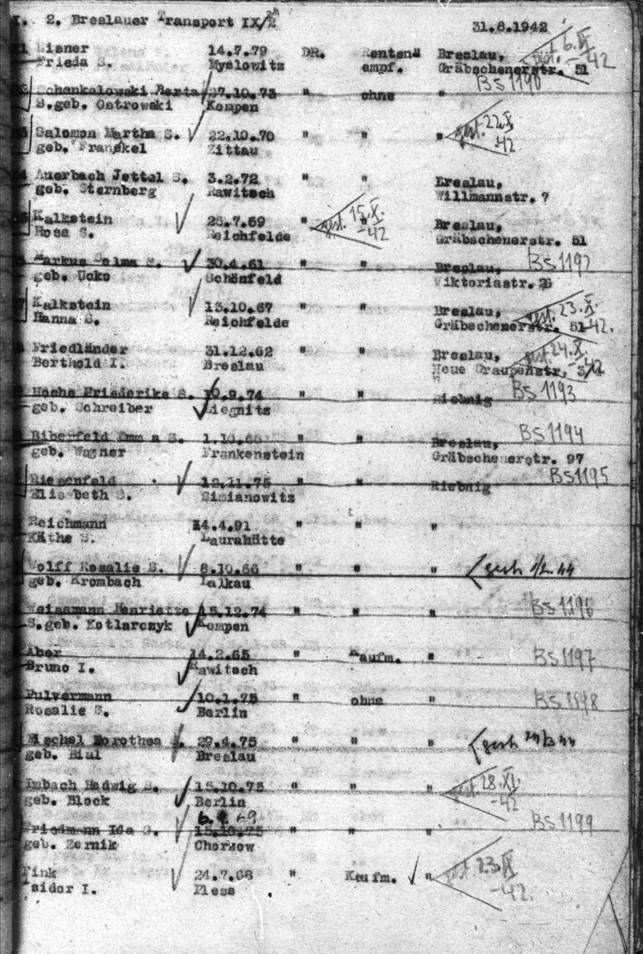 I. 2. Breslauer Transport IX/2 31.8.1942
Eisner 14.7.79 DR. Renten" Breslau,
Frieda S. Myslowitz empf. Gräbschenerstr. 51
-42
BS 1190
Schenkalowski Berta 27.10.73 " ohne "
S.geb. Ostrowski Kempen
Salomon Martha S. 22.10.70 " " "
gest. 22.X.
-42
geb. Fraenkel Zittau
Auerbach Jettel S. 3.2.72 " " Breslau,
geb. Sternberg Rawitsch Willmannstr. 7
Kalkstein 25.7.69 " " Breslau,
gest. 15.X.
-42
Rosa S. Reichfelde Gräbschenerstr. 51
Markus Selma S. 30.4.61 " " Breslau, BS 1192
geb. Ucko Schönfeld Viktoriastr.
Kalkstein 13.10.67 " " Breslau, gest. 23.X.
Hanna S. Reichfelde Gräbschenerstr. 51 -42.
Friedländer 31.12.62 " " Breslau, gest. 24.X.
Berthold I. Breslau Neue Graupenstr. -42
Sachs Friederike S. 10.9.74 " " Riebnig BS 1193
geb. Schreiber Liegnitz
Biberfeld Emma S. " " Breslau, BS 1194
geb. Wagner Frankenstein Gräbschenerstr. 97
Riesenfeld 12.11.75 " " Riebnig BS 1195
Elisabeth S. Simianowitz
Reichmann 24.4.91 " " "
Käthe S. Laurahütte
Wolff Rosalie S. 8.10.66 " " " gest. 44
geb. Krombach Lalkau
Weissmann Henriette 15.12.74 " " " BS 1196
S.geb. Kotlarczyk Kempen
Aber 14.2.65 " Kaufm. " BS 1197
Bruno I. Rawitsch
Pulvermann 10.1.75 " ohne " BS 1198
Rosalie S. Berlin
Mischel Dorothea S. 29.4.75 " " " gest. 44
geb. Breslau
Imbach Hedwig S. 15.10.75 " " " gest. 28.XI.
-42
geb. Block Berlin
Friedmann Ida S. 15.10.75 " " " BS 1199
geb. Zernik Chorzow
Fink 24.7.68 " Kaufm. " gest. 23.X
-42.
Isidor I. Pless